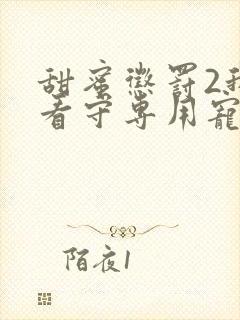 甜蜜惩罚2我
看守专用宠
陌夜1